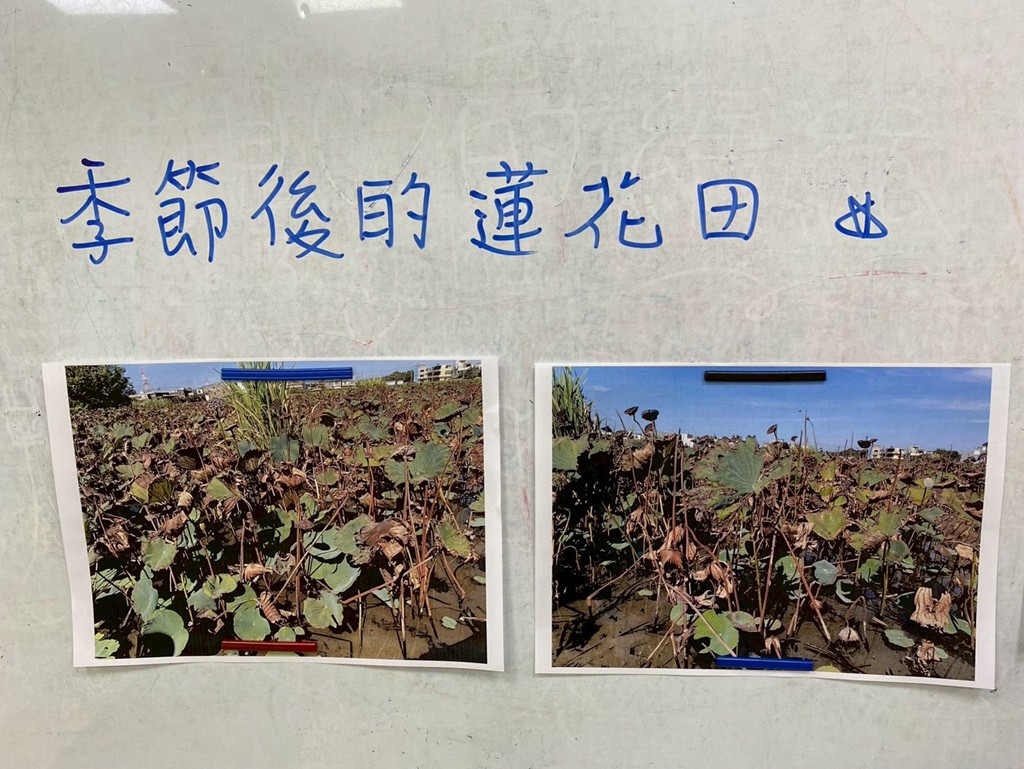 季節後的蓮花田